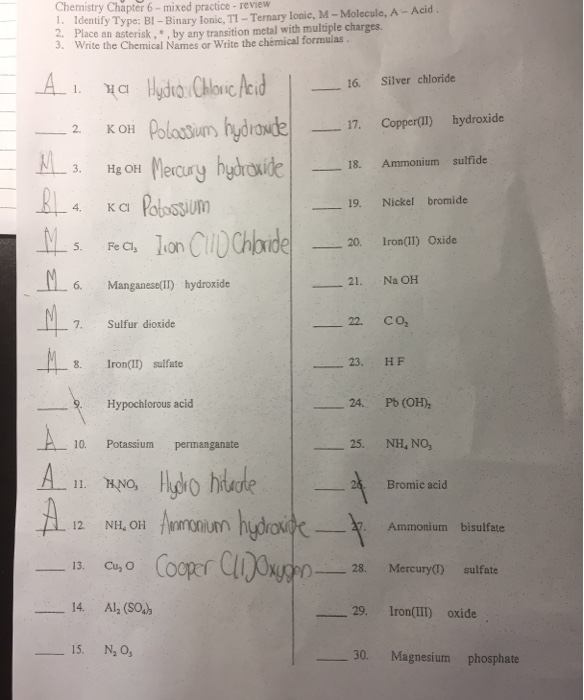 Chemistry Chapter 6 - mixed practice - review
1. Identify Type: BI - Binary Ionic, TI - Ternary Ionic, M - Molecule, A - Acid.
2. Place an asterisk, *, by any transition metal with multiple charges.
3. Write the Chemical Names or Write the chemical formulas.
A 1. H Cl Hydro Chloric Acid
2. K OH Potassium hydroxide
M 3. Hg OH Mercury hydroxide
BI 4. K Cl Potassium
M 5. Fe Cl₃ Iron (III) Chloride
M 6. Manganese(II) hydroxide
M 7. Sulfur dioxide
M 8. Iron(II) sulfate
9. Hypochlorous acid
A 10. Potassium permanganate
A 11. H NO₃ Hydro nitrate
A 12. NH₄ OH Ammonium hydroxide
13. Cu₂ O Cooper (I) Oxygen
14. Al₂ (SO₄)₃
15. N₂ O₅
16. Silver chloride
17. Copper(II) hydroxide
18. Ammonium sulfide
19. Nickel bromide
20. Iron(II) Oxide
21. Na OH
22. C O₂
23. H F
24. Pb (OH)₂
25. NH₄ NO₃
26. Bromic acid
27. Ammonium bisulfate
28. Mercury(I) sulfate
29. Iron(III) oxide
30. Magnesium phosphate